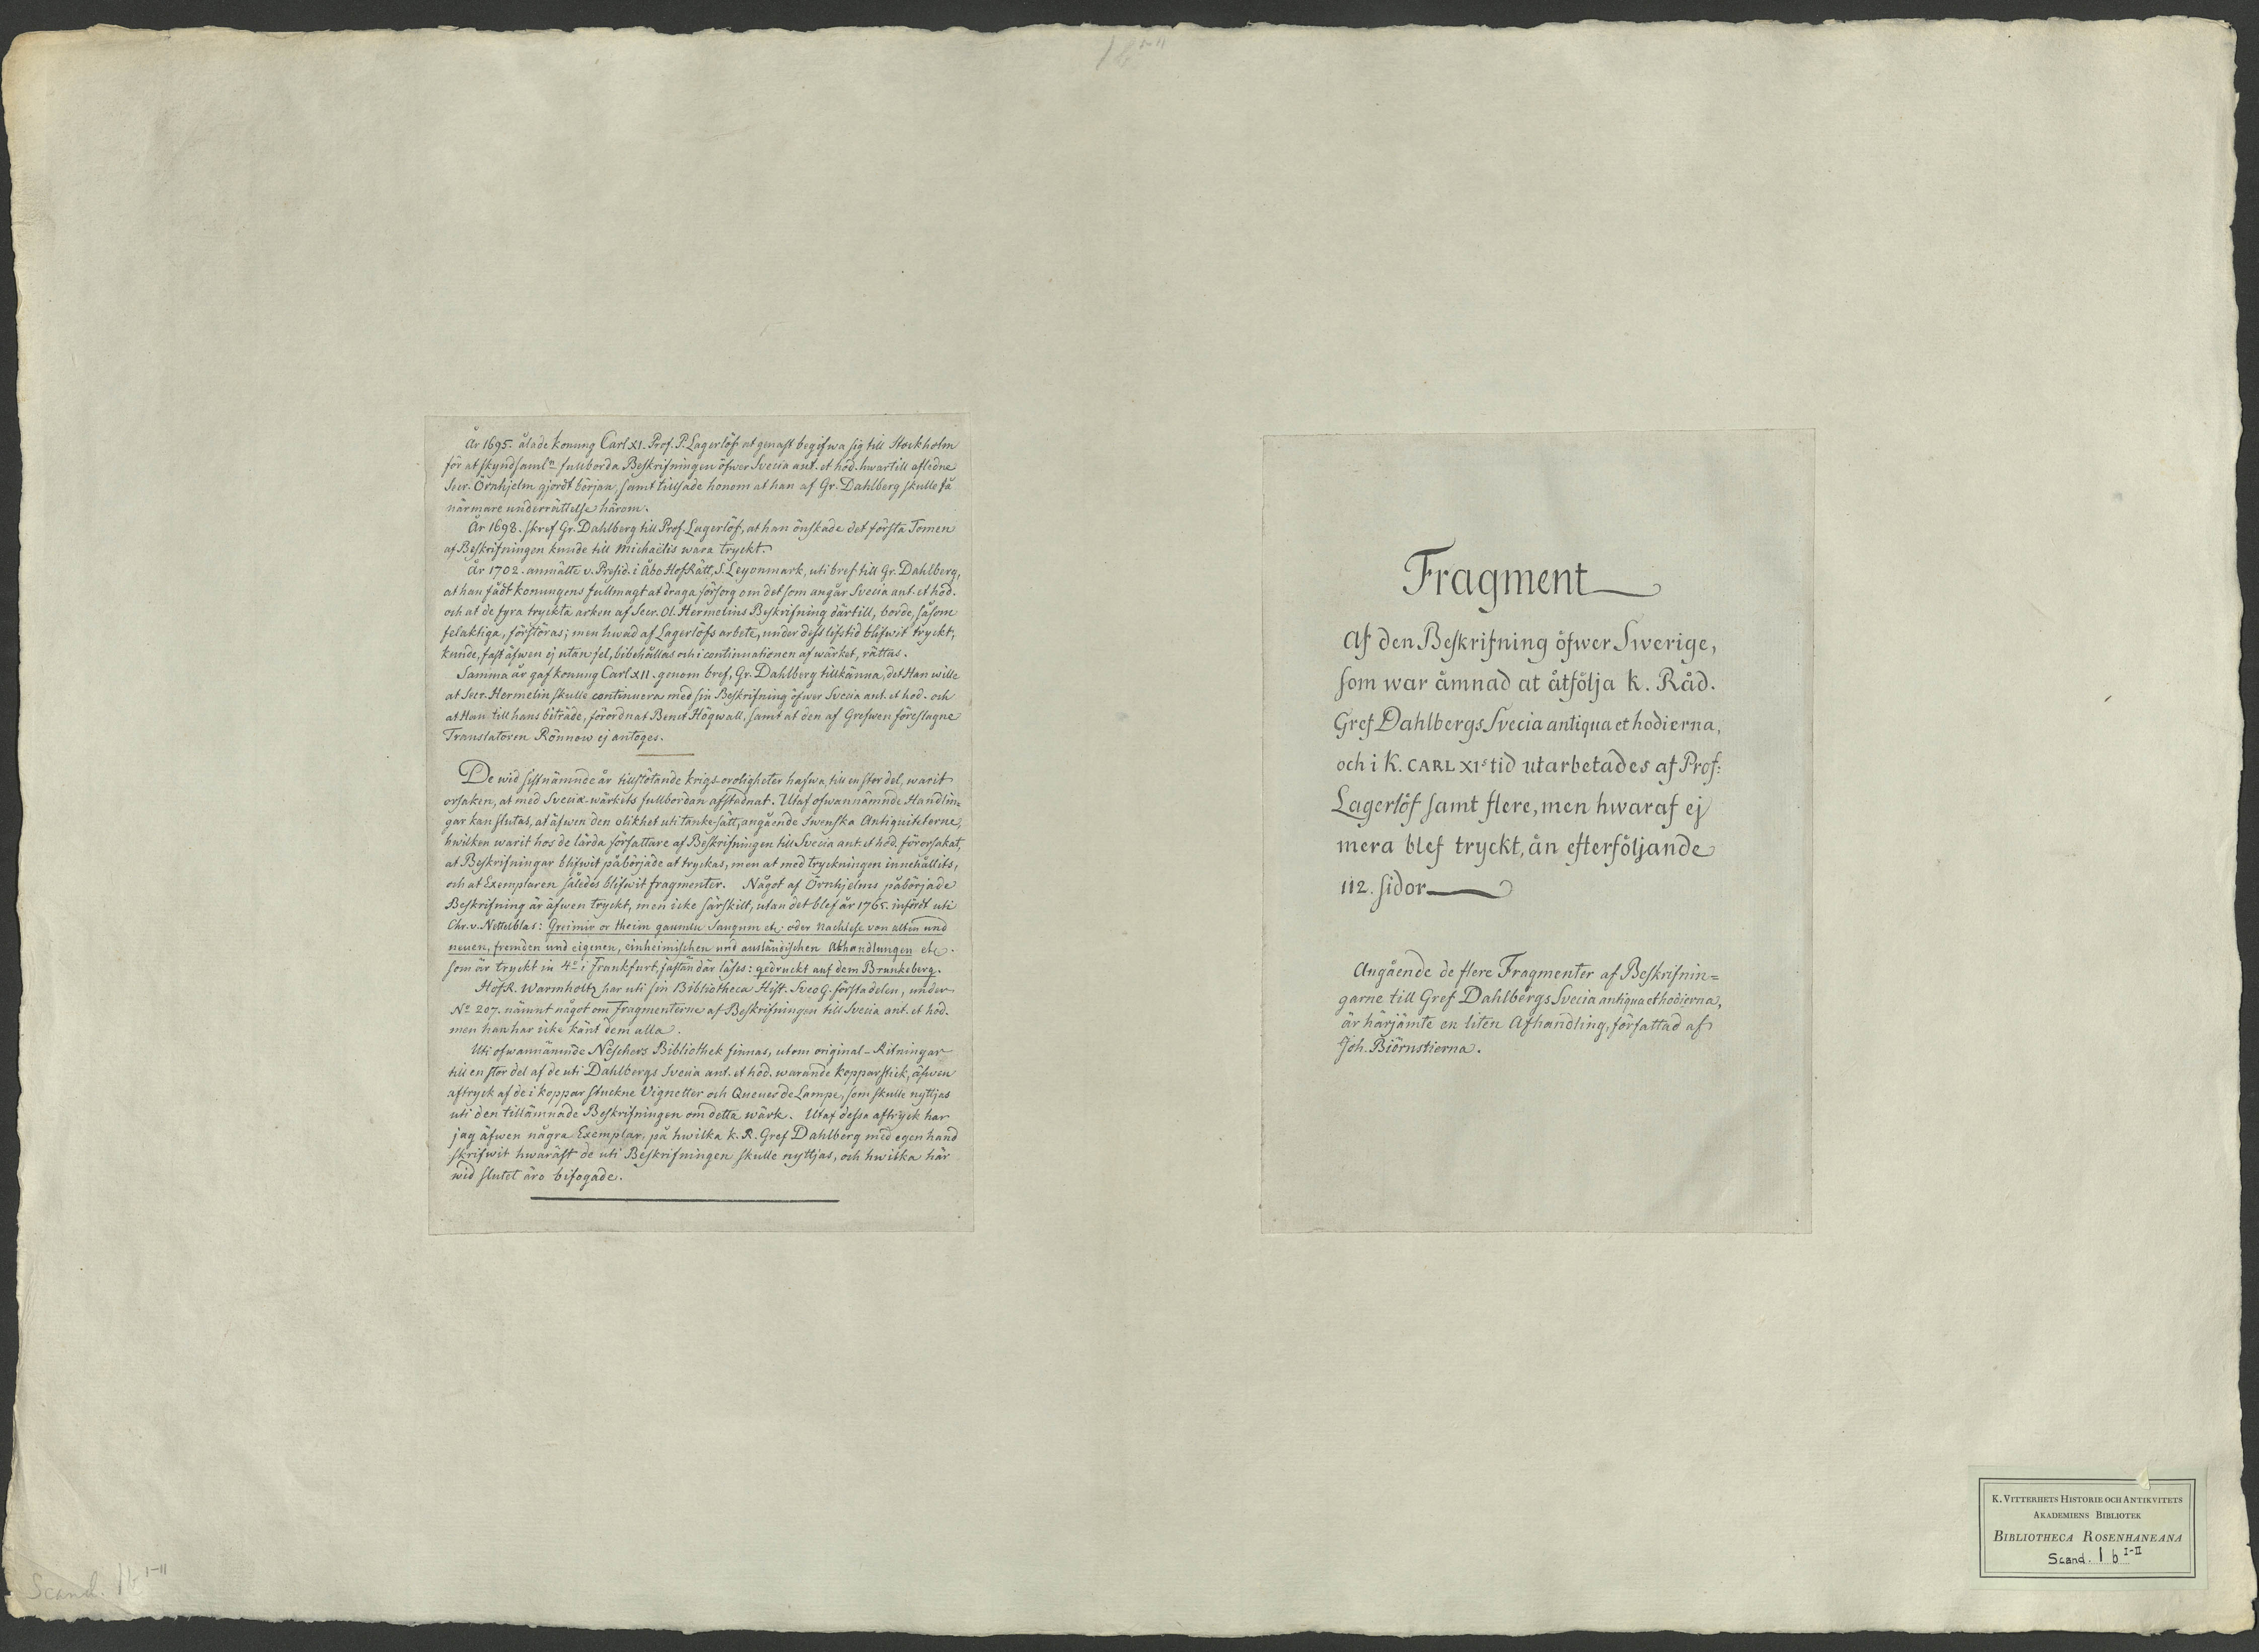 År 1695. ålade Konung Carl XI. Prof. P. Lagerlöf at genast begifwa sig till Stockholm
för at skyndsaml.n fullborda Beskrifningen öfwer Svecia ant. et hod. hwartill afledne
Secr. Örnhjelm gjordt början, samt tillsade honom at han af Gr. Dahlberg skulle få
närmare underrättelse härom.
År 1698. skref Gr. Dahlberg till Prof. Lagerlöf, at han önskade det första Tomen
af Beskrifningen kunde till Michaëlis wara tryckt.
År 1702. anmälte v. Presid. i Åbo HofRätt, S. Leyonmark, uti bref till Gr. Dahlberg,
at han fådt Konungens fullmagt at draga försorg om det som angår Svecia ant. et hod.
och at de fyra tryckta arken af Secr. Ol. Hermelins Beskrifning därtill, borde, såsom
felaktiga, förstöras; men hwad af Lagerlöfs arbete, under dess lifstid blifwit tryckt,
kunde, fast äfwen ej utan fel, bibehållas och i continuationen af wärket, rättas.
Samma år gaf Konung Carl XII. genom bref, Gr. Dahlberg tillkänna, det Han wille
at Secr. Hermelin skulle continuera med sin Beskrifning öfwer Svecia ant. et hod. och
at Han till hans biträde, förordnat Benct Högwall, samt at den af Grefwen föreslagne
Translatoren Rönnow ej antoges.
De wid sistnämnde år tillstötande krigs-oroligheter hafwa, till en stor del, warit
orsaken, at med Sveciæ-wärkets fullbordan afstadnat. Utaf ofwannämnde Handlin=
gar kan slutas, at äfwen den olikhet uti tanke-sätt, angående Swenska Antiquiteterne,
hwilken warit hos de lärda författare af Beskrifningen till Svecia ant. et hod. förorsakat,
at Beskrifningar blifwit påbörjade at tryckas, men at med tryckningen innehållits,
och at Exemplaren således blifwit fragmenter. Något af Örnhjelms påbörjade
Beskrifning är äfwen tryckt, men icke särskilt, utan det blef år 1765. infördt uti
Chr. v. Nettelblas: Greinir or theim gaumlu Saugum etc. oder Nachlese von alten und
neuen, fremden und eigenen, einheimischen und ausländischen Abhandlungen etc.
som är tryckt in 4:o i Frankfurt, fastän där läses: gedruckt auf dem Brunkeberg.
HofR. Warmholtz har uti sin Bibliotheca Hist. Sveo G. första delen, under
No 207. nämnt något om Fragmenterne af Beskrifningen till Svecia ant. et hod.
men han har icke känt dem alla.
Uti ofwannämnde Neschers Bibliothek finnas, utom original-Ritningar
till en stor del af de uti Dahlbergs Svecia ant. et hod. warande kopparstick, äfwen
aftryck af de i koppar stuckne Vignetter och Queues de Lampe, som skulle nyttjas
uti den tillämnade Beskrifningen om detta wärk. Utaf dessa aftryck har
jag äfwen några Exemplar, på hwilka K. R. Gref Dahlberg med egen hand
skrifwit hwaräst de uti Beskrifningen skulle nyttjas, och hwilka här
wid slutet äro bifogade.
Fragment
Af den Beskrifning öfwer Swerige,
som war ämnad at åtfölja K. Råd.
Gref Dahlbergs Svecia antiqua et hodierna,
och i K. CARL XI.s tid utarbetades af Prof:
Lagerlöf samt flere, men hwaraf ej
mera blef tryckt, än efterföljande
112. sidor
Angående de flere Fragmenter af Beskrifnin=
garne till Gref Dahlbergs Svecia antiqua et hodierna,
är härjämte en liten Afhandling, författad af
Joh. Biörnstierna.
K. VITTERHETS HISTORIE OCH ANTIKVITETS
AKADEMIENS BIBLIOTEK
BIBLIOTHECA ROSENHANEANA
Scand. 1 b I-II
Scand. 1 b I-II
1 b I-II